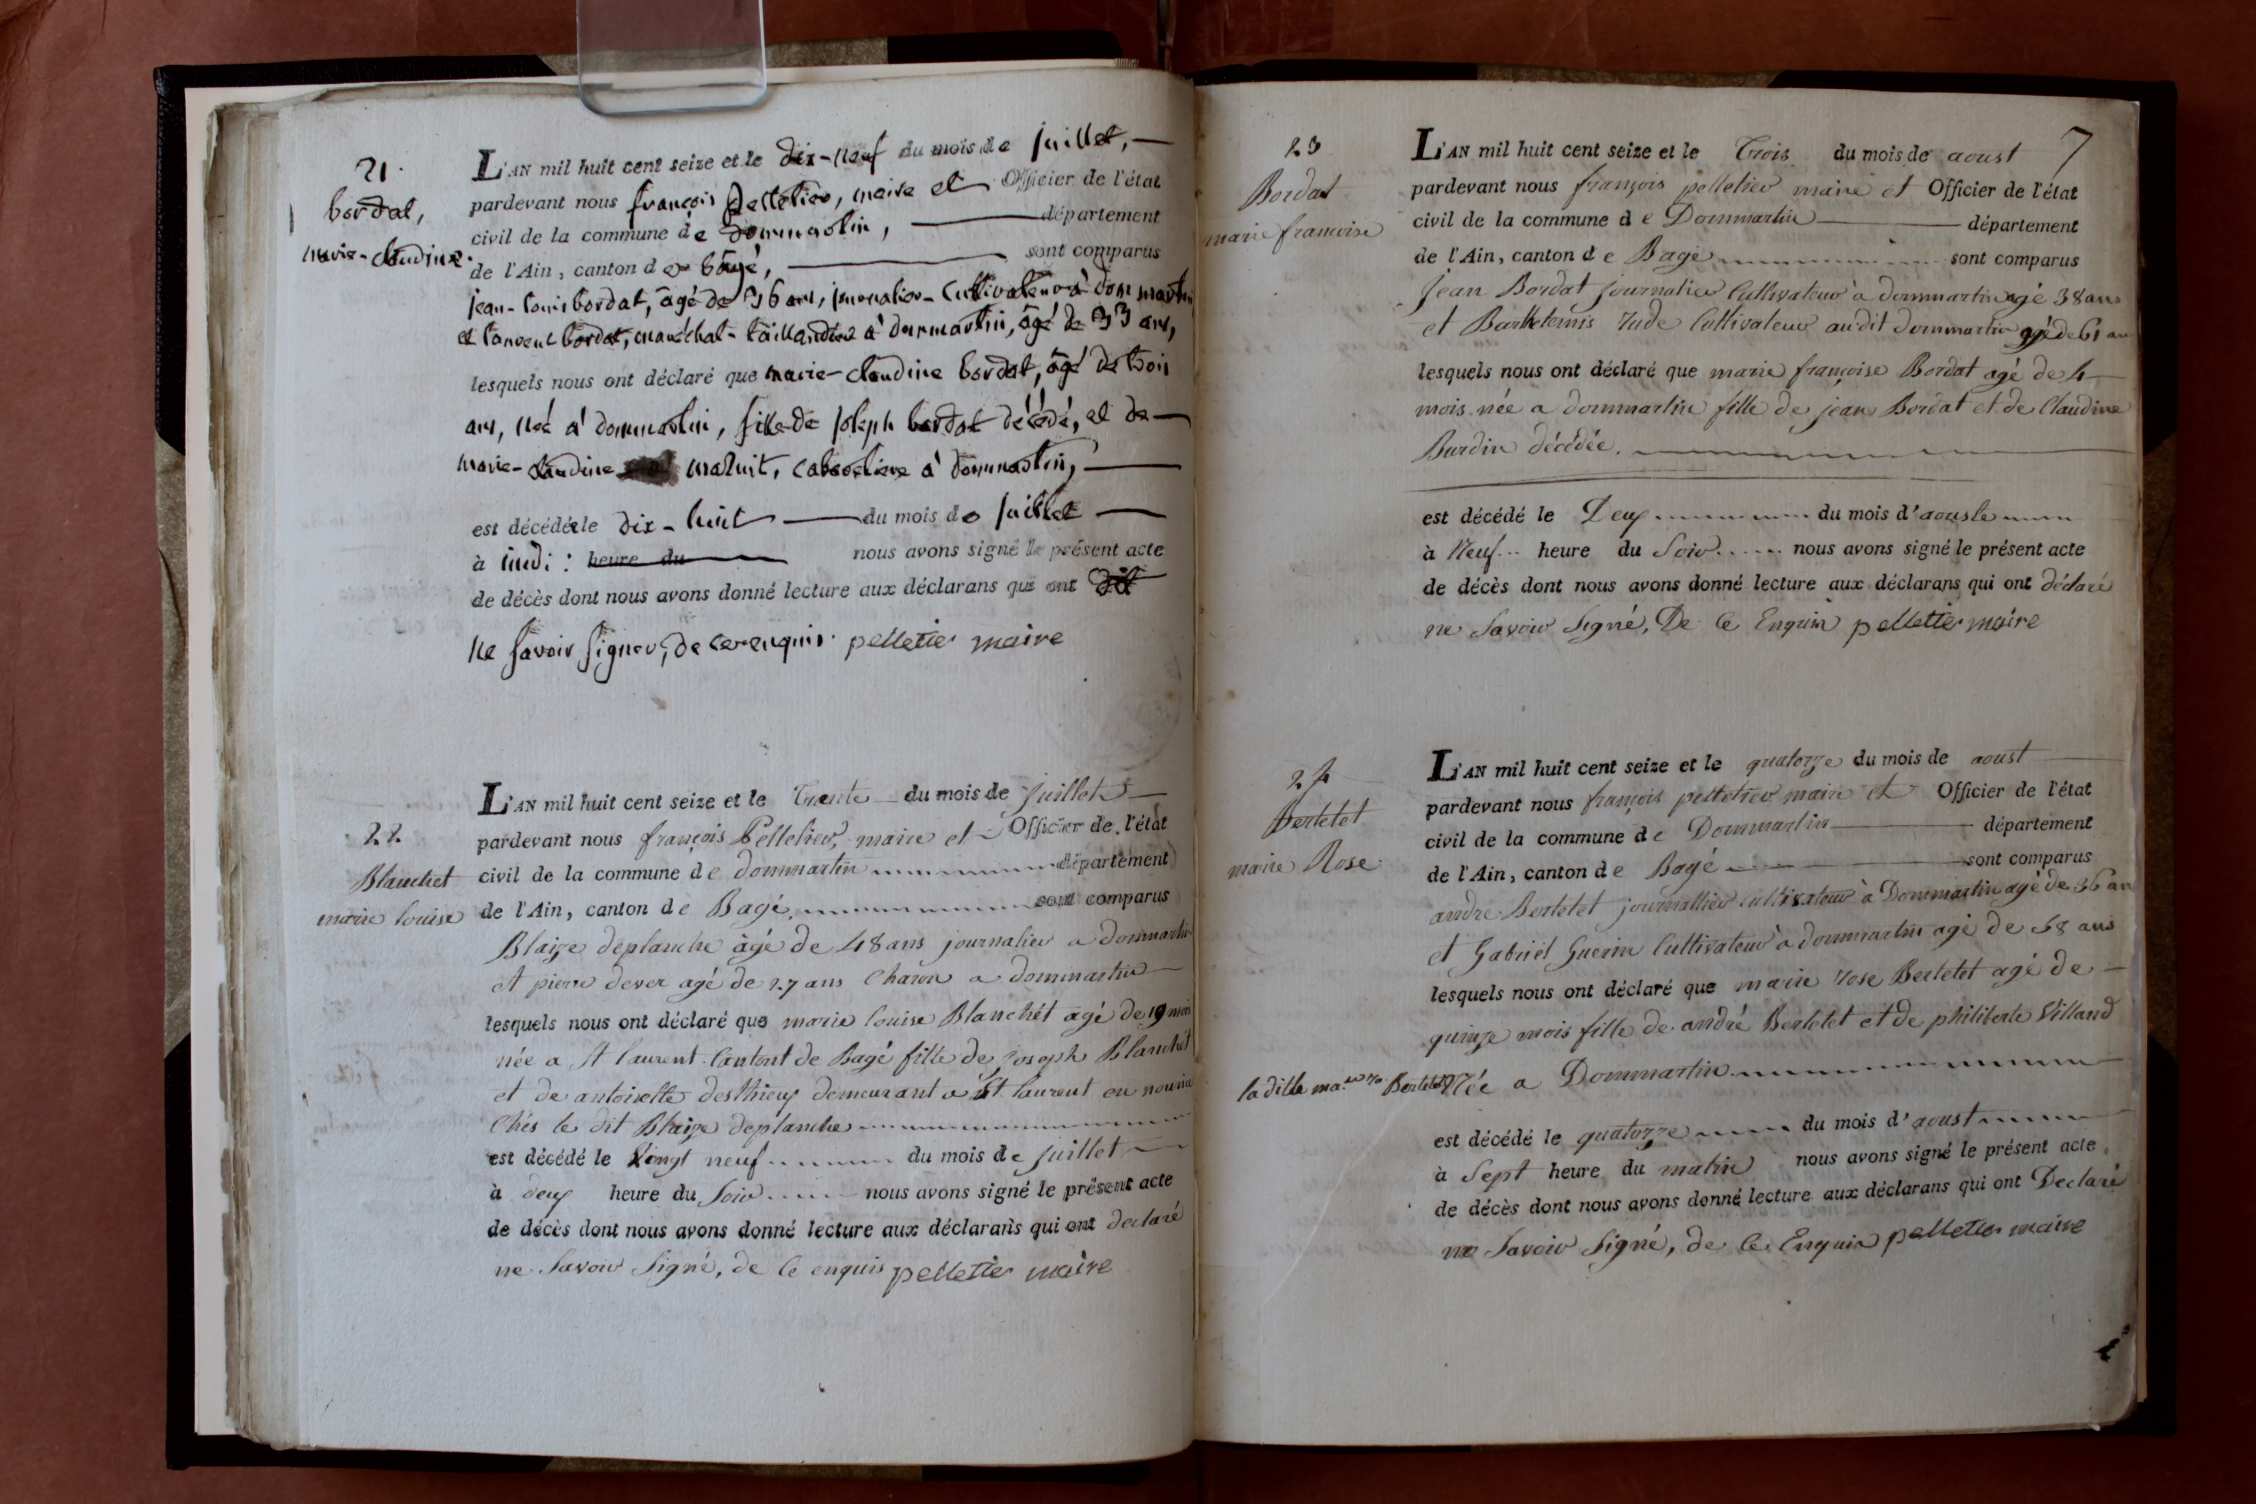 21.
bordat,
marie-claudine.
L'AN mil huit cent seize et le dix-neuf du mois de juillet,
pardevant nous françois pelletier, maire et Officier de l'état
civil de la commune de dommartin, département
de l'Ain, canton de bâgé, sont comparus
jean-louis bordat, âgé de 36 ans, journalier-cultivateur à dommartin
et laurent bordat, maréchal-taillandier à dommartin, âgé de 33 ans,
lesquels nous ont déclaré que marie-claudine bordat, âgé de trois
ans, née à dommartin, fille de joseph bordat décédé, et de
marie-claudine maluit, cabaretière à dommartin,
est décédée le dix-huit du mois de juillet
à midi : heure du nous avons signé le présent acte
de décès dont nous avons donné lecture aux déclarans qui ont dit
ne savoir signer, de ce enquis. pelletier maire
22
Blanchet
marie louise
L'AN mil huit cent seize et le trente du mois de juillet
pardevant nous françois Pelletier, maire et Officier de l'état
civil de la commune de dommartin département
de l'Ain, canton de Bagé sont comparus
Blaize deplanche âgé de 48 ans journalier a dommartin
et pierre dever agé de 27 ans Charon a dommartin
lesquels nous ont déclaré que marie louise Blanchét agé de 19 mois
née a St laurent Cantont de Bagé fille de joseph Blanchét
et de antoinette desthieux demeurant a St laurent en nourice
Chés le dit Blaize deplanche
est décédé le Vingt neuf du mois de juillet
à deux heure du Soir nous avons signé le présent acte
de décès dont nous avons donné lecture aux déclarans qui ont declaré
ne Savoir Signé, de Ce enquis pelletier maire
7
23
Bordat
marie francoise
L'AN mil huit cent seize et le Trois du mois de aoust
pardevant nous françois pelletier maire et Officier de l'état
civil de la commune de Dommartin département
de l'Ain, canton de Bagé sont comparus
Jean Bordat journalier Cultivateur à dommartin agé 38 ans
et Barthelemis rude Cultivateur audit dommartin agé de 61 an
lesquels nous ont déclaré que marie françoise Bordat agé de 4
mois née a dommartin fille de jean Bordat et de Claudine
Burdin décédée.
est décédé le Deux du mois d'aouste
à Neuf heure du Soir nous avons signé le présent acte
de décès dont nous avons donné lecture aux déclarans qui ont déclaré
ne Savoir Signé, De Ce Enquis pelletier maire
24
Bertetet
marie Rose
L'AN mil huit cent seize et le quatorze du mois de aoust
pardevant nous françois pelletier maire et Officier de l'état
civil de la commune de Dommartin département
de l'Ain, canton de Bagé sont comparus
andre Bertetet journallier cultivateur à Dommartin agé de 36 an
et Gabriël Guerin Cultivateur a dommartin agé de 58 ans
lesquels nous ont déclaré que marie rose Bertetet agé de
quinze mois fille de andré Bertetet et de philiberte Villand
la ditte Bertetet Née a Dommartin
est décédé le quatorze du mois d'aoust
à Sept heure du matin nous avons signé le présent acte
de décès dont nous avons donné lecture aux déclarans qui ont Declaré
ne Savoir Signé, de Ce Enquis pelletier maire